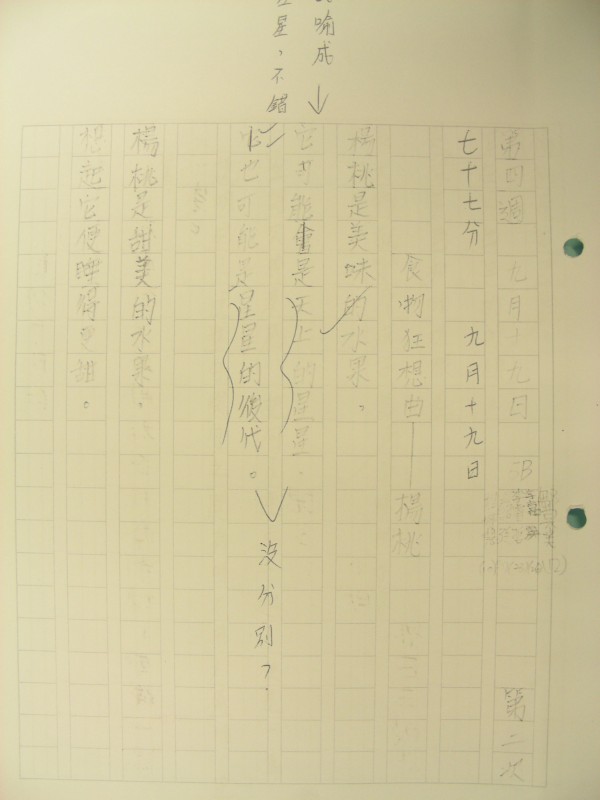 第四週 九月十九日 B 第二次
七十七分 九月十九日
食物狂想曲——楊桃
喻成
楊桃是美味的水果。
星，不錯
它可能是天上的星星。
它也可能是星星的後代。
沒分別？
楊桃是甜美的水果。
想起它便睡得更甜。